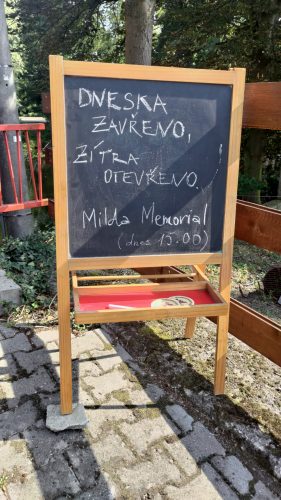 DNESKA
ZAVŘENO,
ZÍTRA
OTEVŘENO.
Milda Memorial
(dnes 15:00)